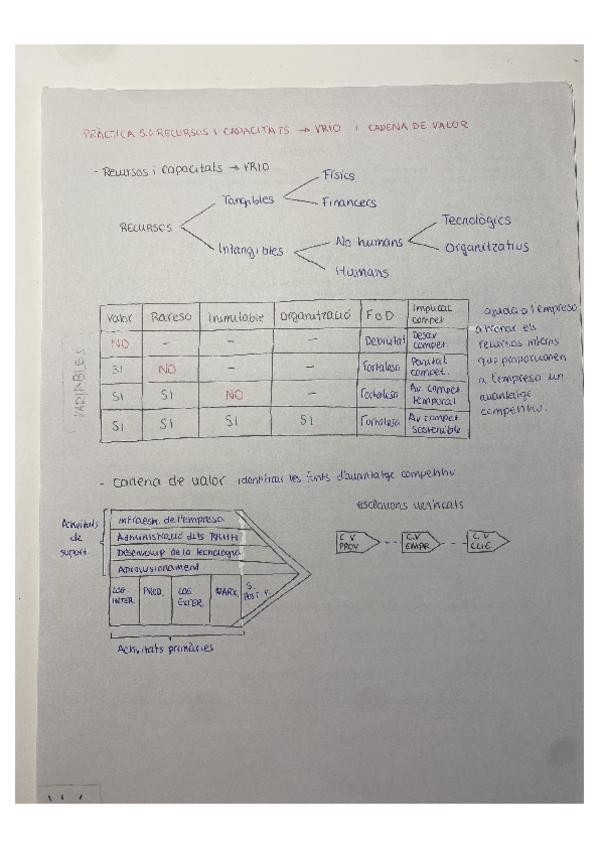 PRÀCTICA 5.0 RECURSOS I CAPACITATS → VRIO I CADENA DE VALOR
- Recursos i capacitats → VRIO
Físics
Tangibles
Financers
RECURSOS
Tecnològics
No humans
Intangibles
Organitzatius
Humans
Valor Raresa Inimitable Organització F o D Implicac. compet
NO - - - Debilitat Desav compet.
SI NO - - Fortalesa Paritat compet.
SI SI NO - Fortalesa Av. compet temporal
SI SI SI SI Fortalesa Av compet sostenible
VARIABLES
ajuda a l'empresa
a trobar els
recursos interns
que proporcionen
a l'empresa un
avantatge
competitiu.
- Cadena de valor identificar les fonts d'avantatge competitiu
esclavons verticals
Activitats
de
suport
Infraestr. de l'empresa
Administració dels RRHH
Desenvolup de la tecnologia
Aprovisionament
LOG INTER. PROD. LOG EXTER. MARK. S. POST V.
Activitats primàries
C.V PROV. C.V EMPR. C.V CLIE.